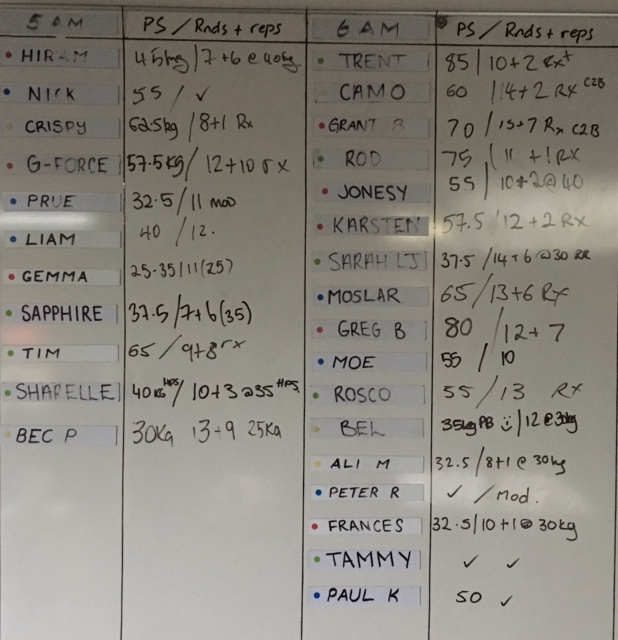 5 AM PS / Rnds + reps
HIRAM 45kg / 7+6 @ 40kg
NICK 55 / ✓
CRISPY 62.5kg / 8+1 Rx
G-FORCE 57.5kg / 12+10 rx
PRUE 32.5 / 11 mod
LIAM 40 / 12.
GEMMA 25-35 / 11 (25)
SAPPHIRE 37.5 / 7+6 (35)
TIM 65 / 9+8 rx
SHARELLE 40KG HPS / 10+3 @ 35 HPS.
BEC P 30Kg 13+9 25Kg
6 AM PS / Rnds + reps
TRENT 85 / 10+2 Rx+
CAMO 60 / 14+2 RX C2B
GRANT 70 / 15+7 Rx C2B
ROD 75 / 11 +1 RX
JONESY 55 / 10+2 @ 40
KARSTEN 57.5 / 12+2 RX
SARAH LJ 37.5 / 14+6 @ 30
MOSLAR 65 / 13+6 RX
GREG B 80 / 12+7
MOE 55 / 10
ROSCO 55 / 13 RX
BEL 35kg PB :) / 12 @ 30kg
ALI M 32.5 / 8+1 @ 30kg
PETER R ✓ / Mod.
FRANCES 32.5 / 10+1 @ 30kg
TAMMY ✓ ✓
PAUL K 50 ✓